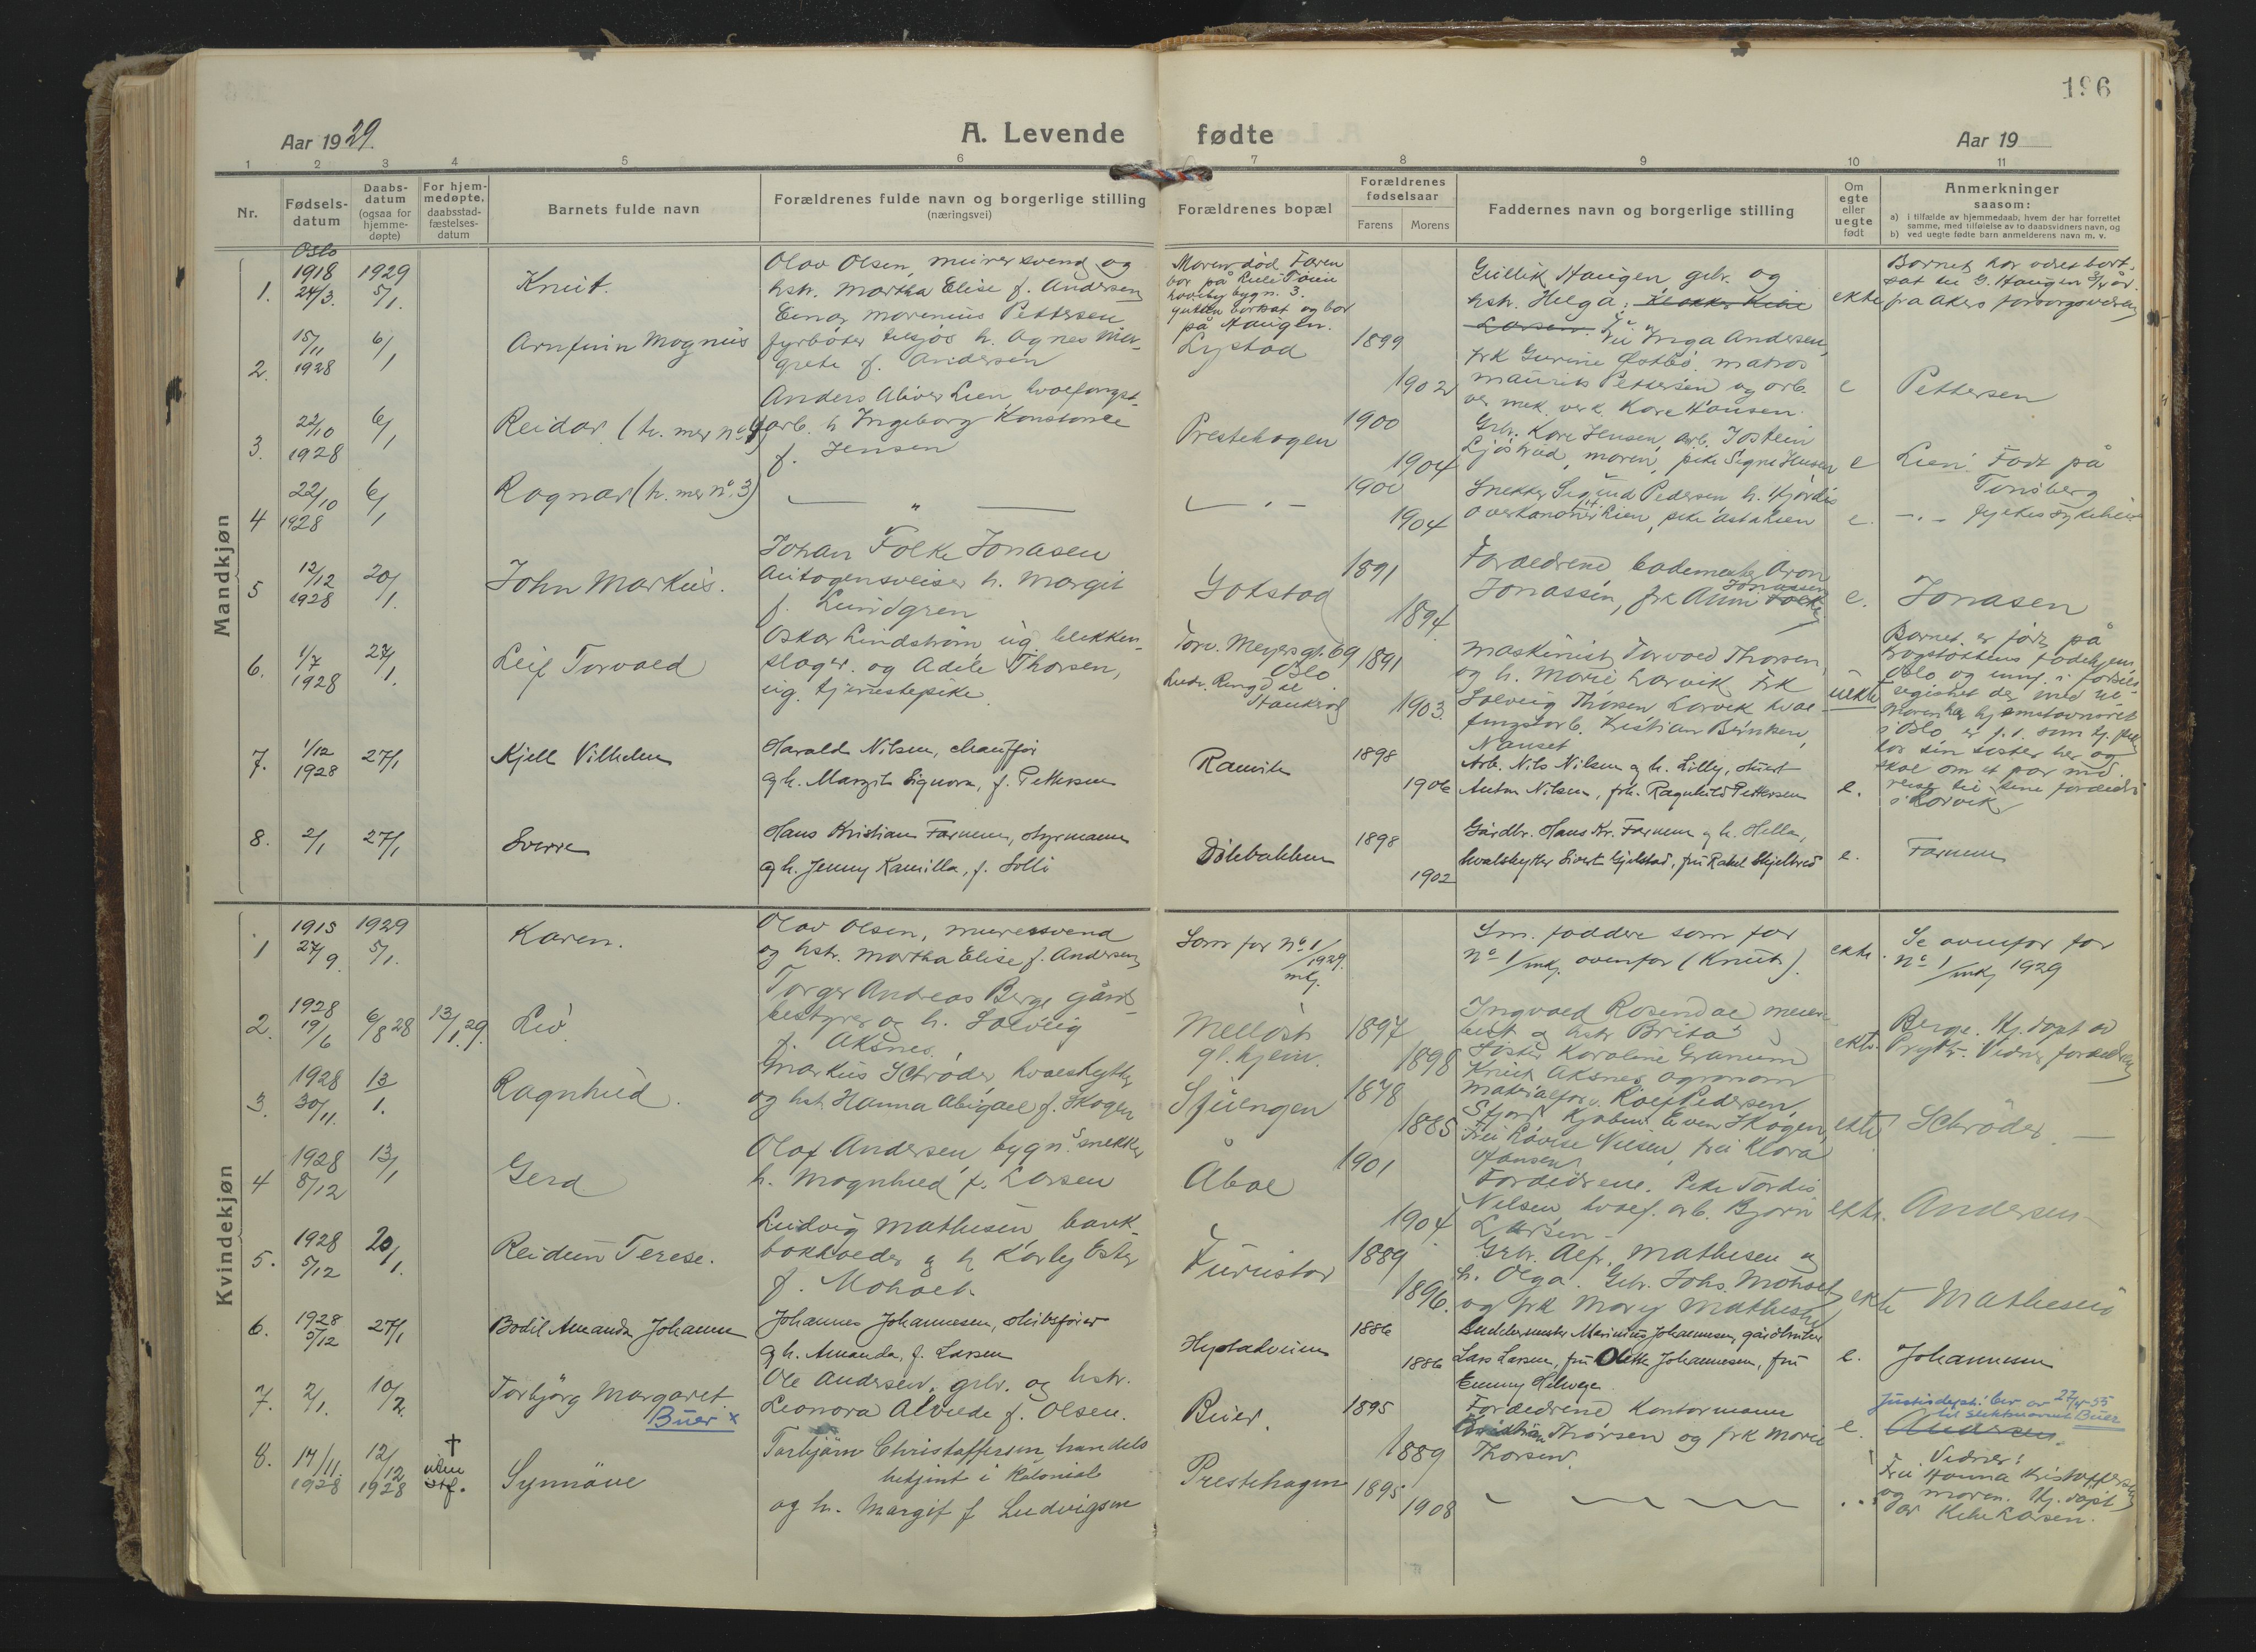 196
Aar 1929.
A. Levende fødte
Aar 19
1 2 3 4 5 6 7 8 9 10 11
Nr.
Fødsels-
datum
Daabs-
datum
(ogsaa for
hjemme-
døpte)
For hjem-
medøpte,
daabsstad-
fæstelses-
datum
Barnets fulde navn
Forældrenes fulde navn og borgerlige stilling
(næringsvei)
Forældrenes bopæl
Forældrenes
fødselsaar
Farens Morens
Faddernes navn og borgerlige stilling
Om
egte
eller
uegte
født
Anmerkninger
saasom:
a) i tilfælde av hjemmedaab, hvem der har forrettet
samme, med tilføielse av to daabsvidners navn, og
b) ved uegte fødte barn anmelderens navn m. v.
Mandkjøn
1.
Oslo
1918
24/3.
1929
5/1.
Knut.
Olav Olsen, murersvend og
hstr. Martha Elise f. Andersen
Moren død. Faren
bor på Lille Tøien
haveby bygn. 3.
gutten bortsat og bor
på Haugen.
Gullik Haugen, gbr. og
hstr. Helga.
ekte
Barnet har været bort-
sat til G. Haugen 3/4 år
fra Akers forsorgsvesen
2.
15/11
1928
6/1
Arnfinn Magnus
Einar Marenius Pettersen
fyrbøter tilsjøs h. Agnes Mar-
grete f. Andersen
Lystad
1899
1902
Fru Inga Andersen,
frk Gurine Østbø. matros
Maurits Pettersen og arb.
ver mek. verk. Kåre Hansen.
e
Pettersen
3.
22/10
1928
6/1
Reidar (tv. mer nº 4)
Anders Oliver Lien, hvalfangst-
arb. h Ingeborg Konstanse
f. Jensen
Prestehagen
1900
1904
Gbr. Kåre Jensen, arb. Jostein
Ljøstad, moren, pike Signe Hansen
e
Lien. Født på
Tønsberg
4
22/10
1928
6/1
Ragnar (tv. mer nº 3)
— " —
— " —
1900
1904
Snekker Sigurd Pedersen h. Hjørdis
Overkanonér Lien, pike Asta Lien
e.
-"- fylkes sykehus
5
12/12
1928
20/1.
John Markus.
Johan Folke Jonasen
Autogensveiser h. Margit
f. Lundgren
Gokstad
1891
1894.
Foreldrene bademester Aron
Jonassen, frk Anni Jonassen
e.
Jonasen
6.
1/7
1928
27/1.
Leif Torvald
Oskar Lindstrøm ug. blikken-
slager. og Adele Thorsen,
ug. tjenestepike.
Torv. Meyers gt. 69
Oslo.
Ringdal
1891
1903.
Maskinist Torvald Thorsen,
og h. Marie Larvik Frk
Solveig Thorsen Larvik hval-
fangstarb. Kristian Brinken,
Nanset
uekte
Barnet er født på
fødehjem
Oslo og innf. i fødsels-
registret der med nº
Moren har hjemstavnsret
i Oslo, er f. t. som tj. pike
hos sin søster her og
skal om et par mnd.
reise til sine foreldre
i Larvik
7.
1/12
1928
27/1
Kjell Vilhelm
Harald Nilsen, chauffør
og h. Margit Signora, f. Pettersen
Ramvik
1898
1906
Arb. Nils Nilsen og h. Lilly, stuert
Anton Nilsen, frk. Ragnhild Pettersen
e.
8.
2/1
27/1
Sverre
Hans Kristian Farmen, styrmann
og h. Jenny Kamilla, f. Solli
Dølebakken
1898
1902
Gårdbr. Hans Kr. Farmen og h. Hella,
hvalskytter Sivert Gjelstad, fru Rakel Skjelbred
e.
Farmen
Kvindekjøn
1
1915
27/9.
1929
5/1.
Karen.
Olav Olsen, murersvend
og hstr. Martha Elise f. Andersen
Som for Nº 1/1929.
mkj.
Sm. faddere som for
nº 1/mkj. ovenfor (Knut).
ekte.
Se ovenfor for
nº 1/mkj 1929
2.
1928
19/6
6/8 28
13/1.29.
Liv.
Torger Andreas Berge gårds
bestyrer og h. Solveig
f. Aksnes.
Melløst
gl. hjem.
1897
1898
Ingvald Rosendal meieri-
best og hstr Brita
Søster Karoline Granum
Knut Aksnes agronom
ekte.
Berge. Hj. døpt av
Prytz. Vidner foreldrene
3.
1928
30/11.
13/1.
Ragnhild.
Markus Schrøder, hvalskytter
og hst Hanna Abigael f. Skogen
Sjuengen
1878
1885
Materialforv. Rolf Pedersen,
Sfjord Kjøbm. Even Skogen,
Fru Lovise Nilsen, fru Klara
Hansen
ekte
Schrøder. —
4
1928
8/12
13/1
Gerd
Olaf Andersen bygn.s snekker
h. Magnhild f. Larsen
Åbol
1901
1904
Foreldrene. Pike Tordis
Nilsen hvalf. arb. Bjørn
Larsen -
ekte.
Andersen-
5.
1928
5/12
20/1.
Reidun Terese.
Ludvig Mathisen bank-
bokholder og h Karley Ester
f. Moholt
Furustad
1889
1896.
Gbr. Alf. Mathisen og
h. Olga. Gbr. Johs. Moholt
og frk Mary Mathisen
ekte
Mathisen
6.
1928
5/12
27/1
Bodil Amanda Johanne
Johannes Johannesen, skibsfører
og h. Amanda, f. Larsen
1886
1886
Marinius Johannesen, gårdbruker
Lars Larsen, fru Olette Johannesen, fru
Emmy
e.
Johannesen
7.
2/1.
10/2.
Torbjørg Margaret.
Buer x
Ole Andersen, gbr. og hstr.
Leonora Alvilde f. Olsen.
Buer.
1895
1889
Foreldrene Kontormann
Thorsen og frk Marie
Thorsen.
e.
Justisdept.s bev av 27/4-55
til slektsnavnet Buer
Andersen.
8.
14/11.
1928
12/12
1928
†
uten
stf.
Synnøve
Torbjørn Christoffersen, handels
betjent i Kolonial
og h. Margit f Ludvigsen
Prestehagen
1895
1908
Vidner:
Fru Hanna Kristoffersen
og moren. Hj. døpt
av Larsen.